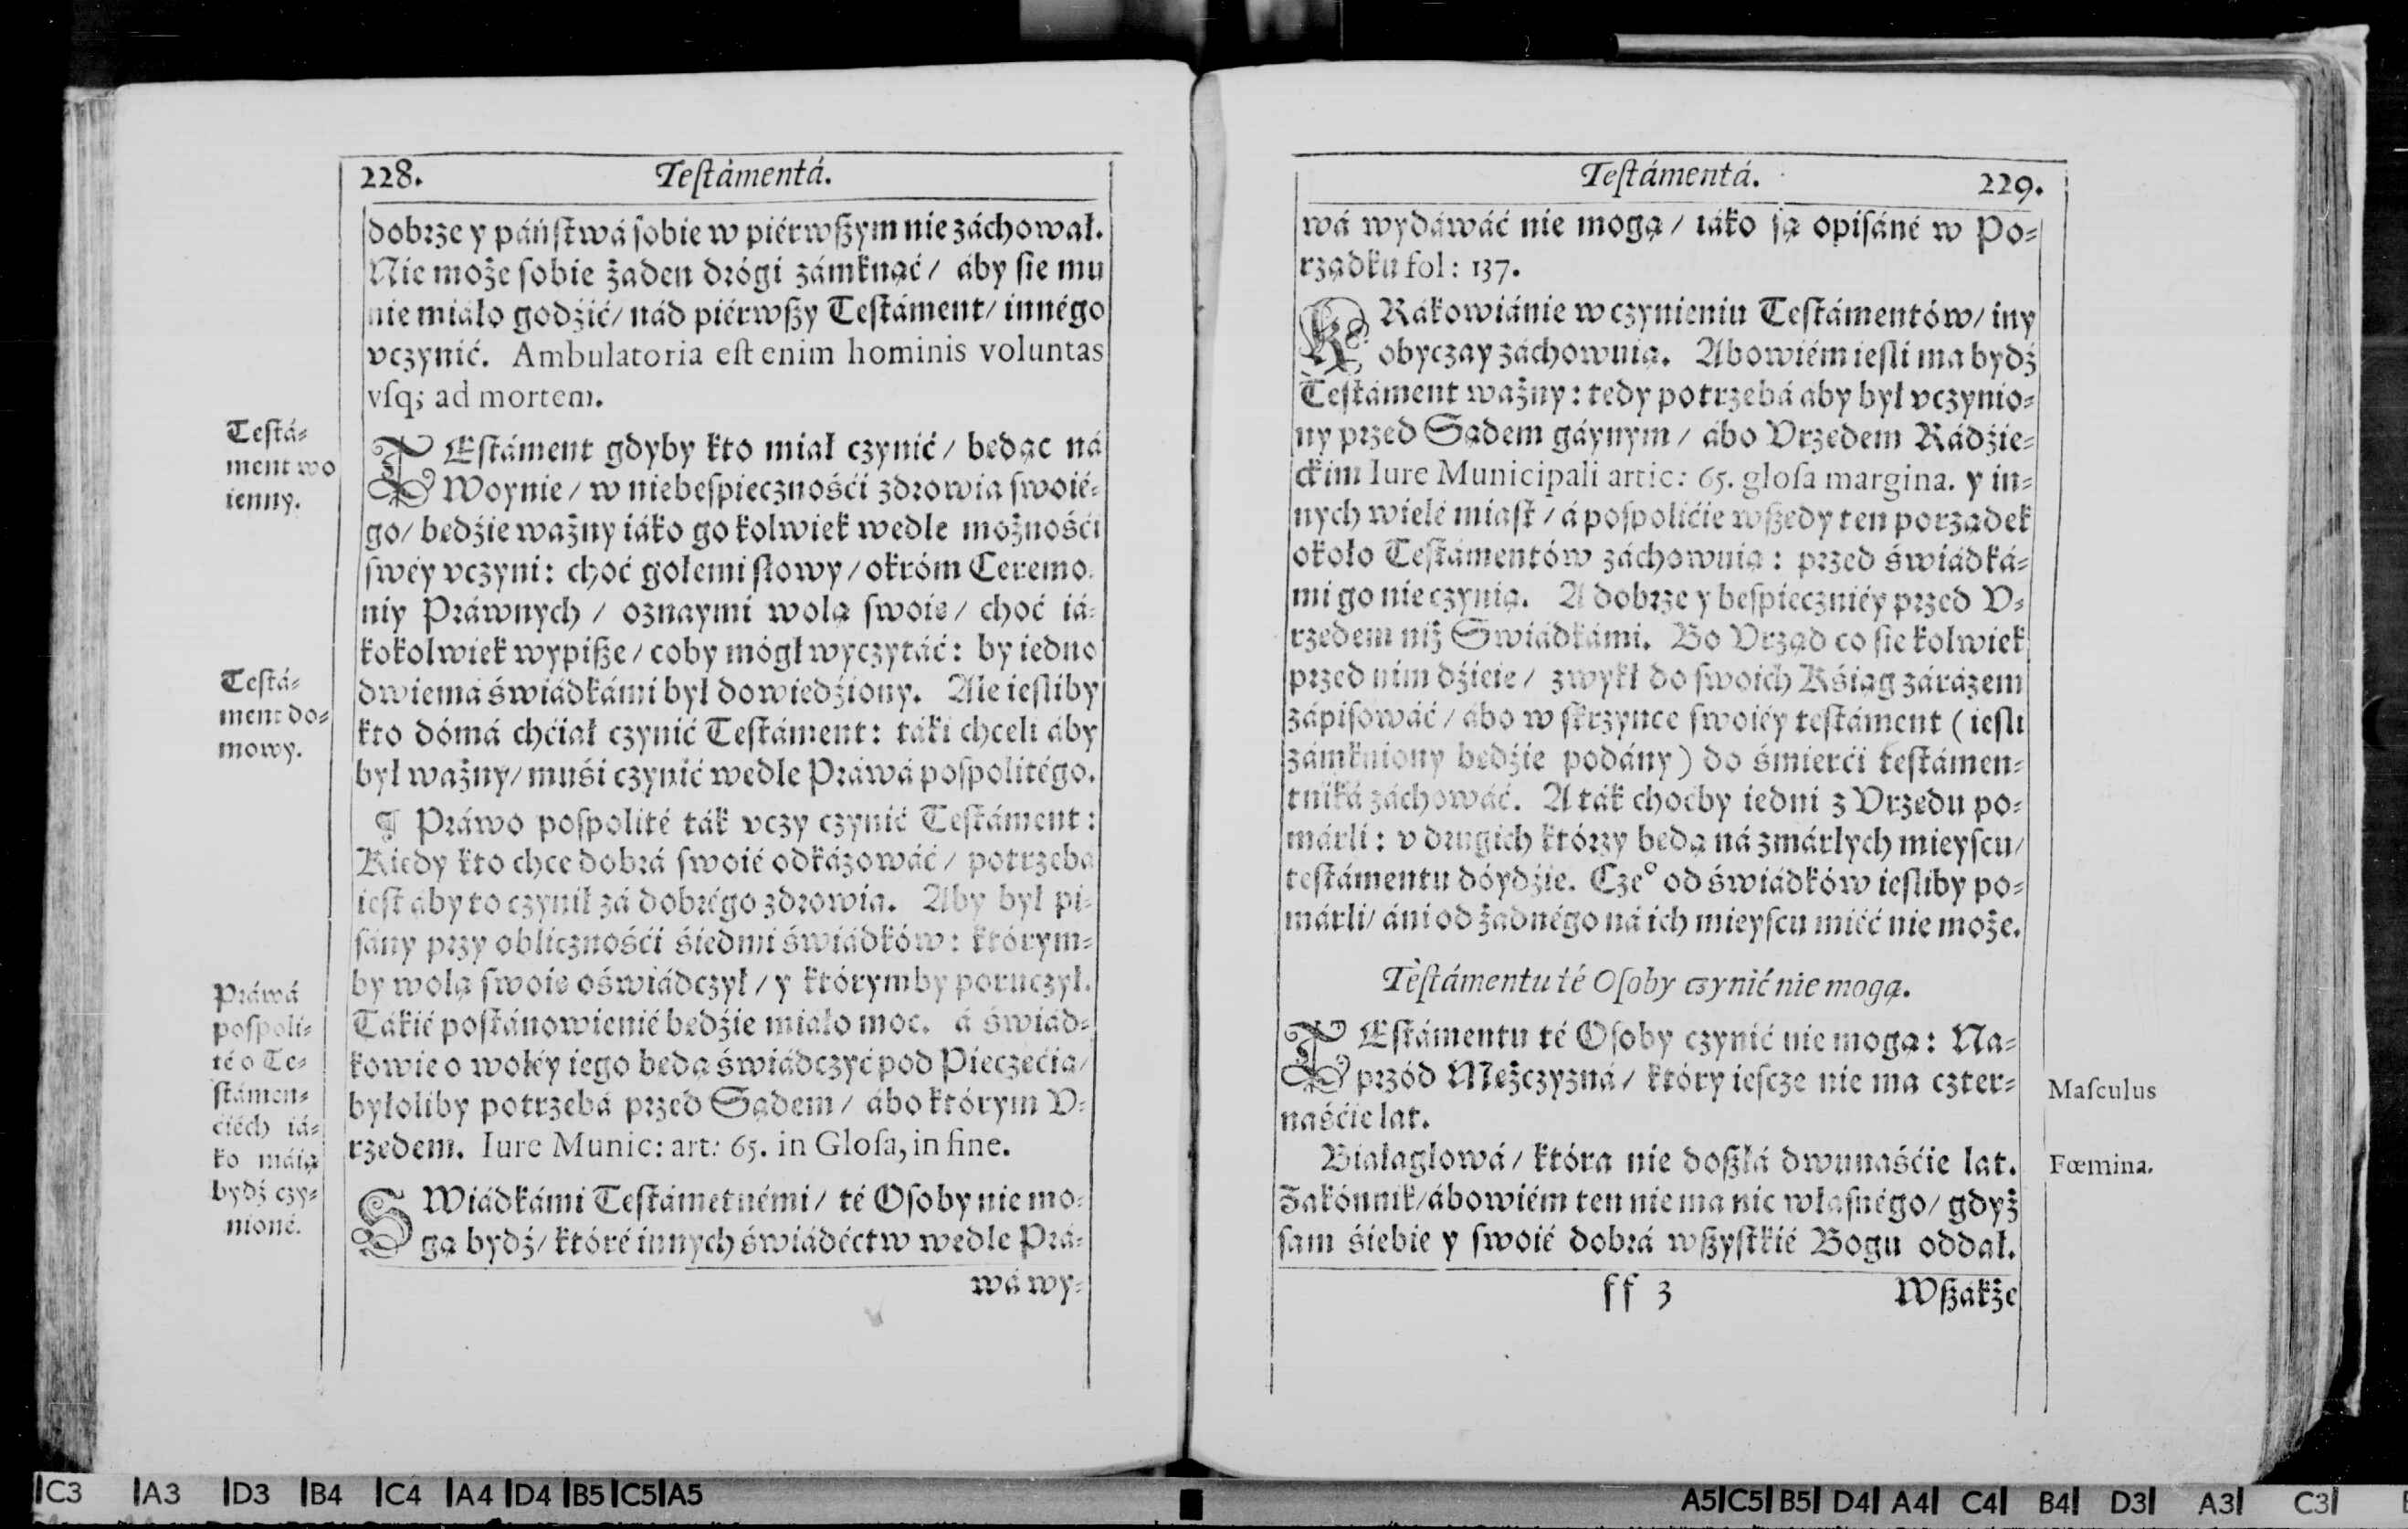 228. Teſtámentá.
dobrze y páńſtwá ſobie w piérwßym nie záchował.
Nie może ſobie żaden drógi zámknąć / áby ſie mu
nie miáło godźić / nád piérwßy Teſtáment / innégo
vczynić. Ambulatoria eſt enim hominis voluntas
vſq; ad mortem.
Teſtá-
ment wo
ienny.
TEſtáment gdyby kto miał czynić / bedąc ná
Woynie / w niebeſpiecznośći zdrowia ſwoié-
go / bedźie ważny iáko go kolwiek wedle możnośći
ſwéy vczyni: choć gołemi ſłowy / okróm Ceremo-
niy Práwnych / oznaymi wolą ſwoie / choć iá-
kokolwiek wypiße / coby mógł wyczytáć: by iedno
dwiemá świádkámi był dowiedźiony. Ale ieſliby
kto dómá chćiał czynić Teſtáment: táki chceli áby
był ważny / muśi czynić wedle Práwá poſpolitégo.
Teſtá-
ment do-
mowy.
¶ Práwo poſpolité ták vczy czynić Teſtáment:
Kiedy kto chce dobrá ſwoié odkázowáć / potrzeba
ieſt aby to czynił zá dobrégo zdrowia. Aby był pi-
ſány przy oblicznośći śiedmi świádków: którym-
by wolą ſwoie oświádczył / y którymby poruczył.
Tákié poſtánowienié bedźie miało moc. á świád-
kowie o wołéy iego bedą świádczyć pod Pieczećią /
byłoliby potrzebá przed Sądem / ábo którym V-
rzedem. Iure Munic: art: 65. in Gloſa, in fine.
Práwá
poſpoli-
té o Te-
ſtámen-
ciéch iá-
ko máią
bydź czy-
nioné.
SWiádkámi Teſtámetnémi / té Oſoby nie mo-
gą bydź / któré innych świádéctw wedle Prá-
wá wy-
Teſtámentá. 229.
wá wydáwáć nie mogą / iáko ſą opiſáné w Po-
rządku fol: 137.
KRákowiánie w czynieniu Teſtámentów / iny
obyczay záchownią. Abowiém ieſli ma bydź
Teſtáment ważny: tedy potrzebá aby był vczynio-
ny przed Sądem gáynym / ábo Vrzedem Rádźie-
ckim Iure Municipali artic: 65. gloſa margina. y in-
nych wielé miaſt / á poſpolićie wßedy ten porządek
około Teſtámentów záchownią: przed świádká-
mi go nie czynią. A dobrze y beſpieczniéy przed V-
rzedem niż Swiádkámi. Bo Vrząd co ſie kolwiek
przed nim dźieie / zwykł do ſwoich Kśiąg zárázem
zápiſowáć / ábo w ſkrzynce ſwoiéy teſtáment (ieſli
zámkniony bedźie podány) do śmierći teſtámen-
tniká záchowáć. A ták choćby iedni z Vrzedu po-
márli: v drugich którzy bedą ná zmárłych mieyſcu /
teſtámentu dóydźie. Czeº od świádków ieſliby po-
márli / áni od żadnégo ná ich mieyſcu miéć nie może.
Teſtámentu té Oſoby czynić nie mogą.
TEſtámentu té Oſoby czynić nie mogą: Na-
przód Meżczyzná / który ieſcze nie ma czter-
naśćie lat.
Masculus
Białagłowá / która nie doßłá dwunaśćie lat.
Fœmina.
Zakónnik / ábowiém ten nie ma nic właſnégo / gdyż
ſam śiebie y ſwoié dobrá wßyſtkié Bogu oddał.
ff 3 Wßakże
C3 A3 D3 B4 C4 A4 D4 B5 C5 A5
A5 C5 B5 D4 A4 C4 B4 D3 A3 C3